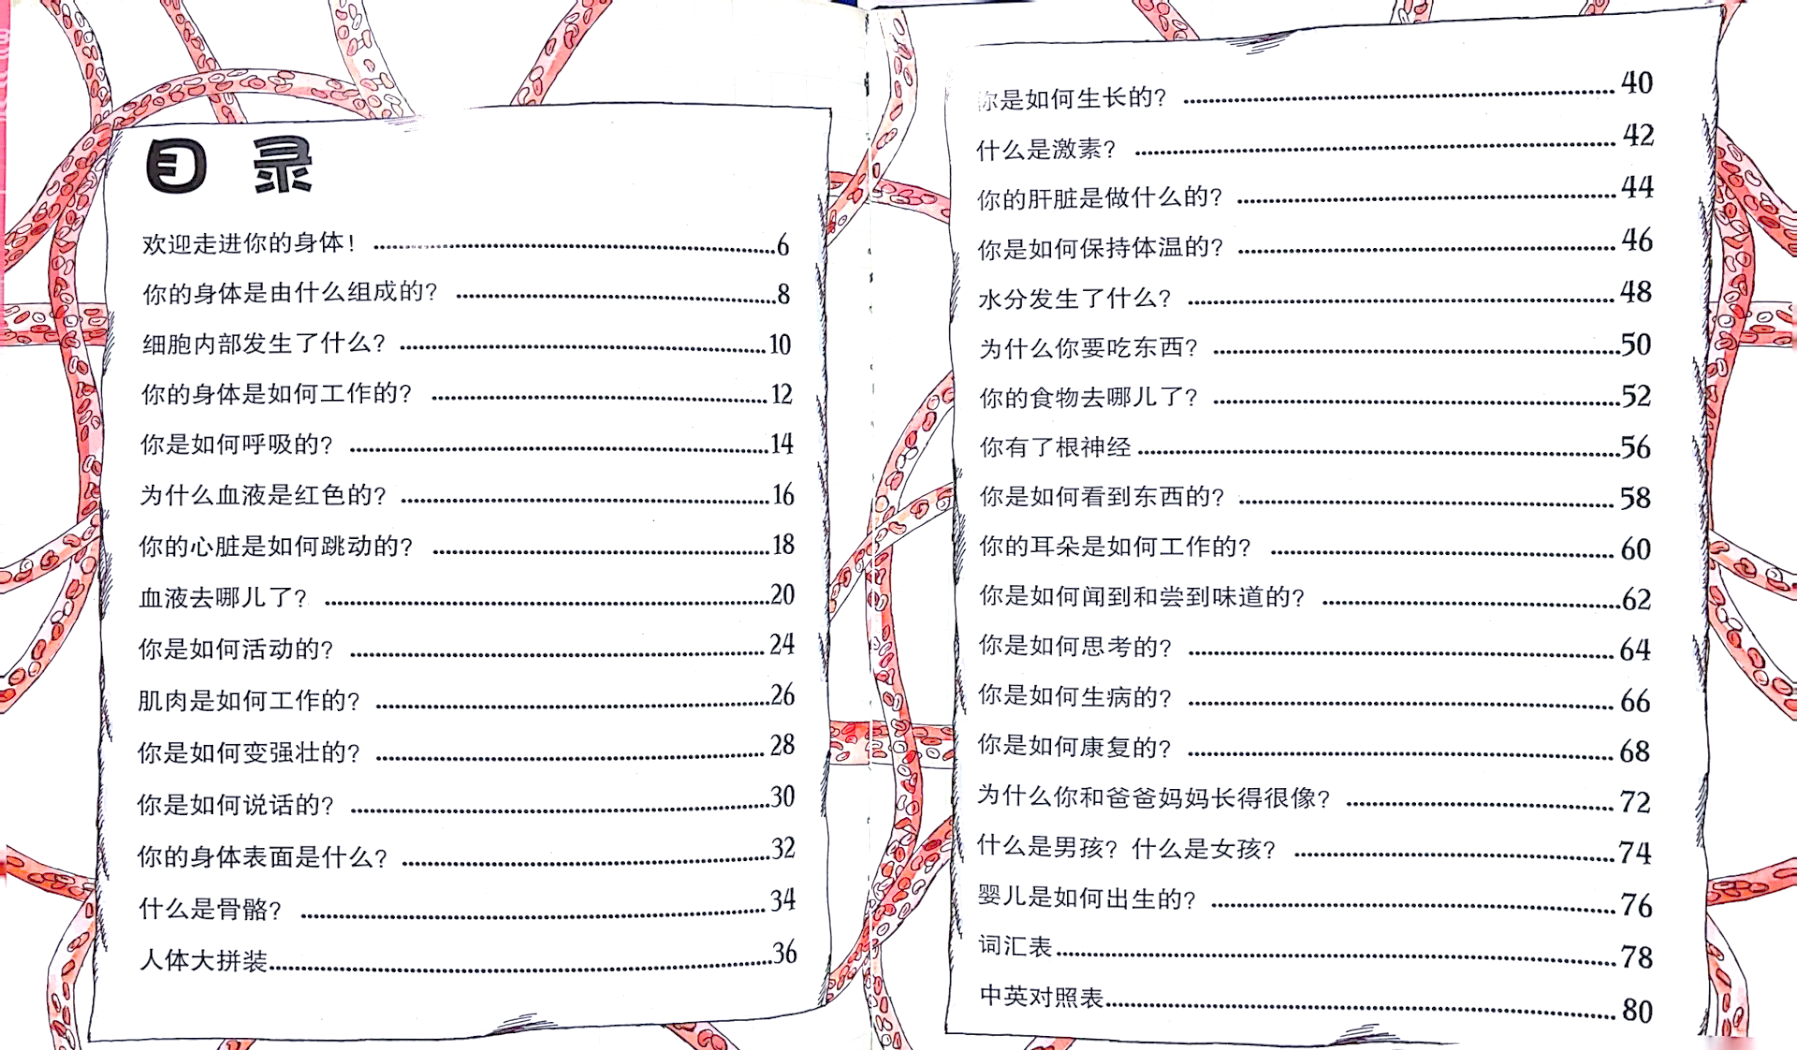 目 录
欢迎走进你的身体！ 6
你的身体是由什么组成的？ 8
细胞内部发生了什么？ 10
你的身体是如何工作的？ 12
你是如何呼吸的？ 14
为什么血液是红色的？ 16
你的心脏是如何跳动的？ 18
血液去哪儿了？ 20
你是如何活动的？ 24
肌肉是如何工作的？ 26
你是如何变强壮的？ 28
你是如何说话的？ 30
你的身体表面是什么？ 32
什么是骨骼？ 34
人体大拼装 36
你是如何生长的？ 40
什么是激素？ 42
你的肝脏是做什么的？ 44
你是如何保持体温的？ 46
水分发生了什么？ 48
为什么你要吃东西？ 50
你的食物去哪儿了？ 52
你有了根神经 56
你是如何看到东西的？ 58
你的耳朵是如何工作的？ 60
你是如何闻到和尝到味道的？ 62
你是如何思考的？ 64
你是如何生病的？ 66
你是如何康复的？ 68
为什么你和爸爸妈妈长得很像？ 72
什么是男孩？什么是女孩？ 74
婴儿是如何出生的？ 76
词汇表 78
中英对照表 80